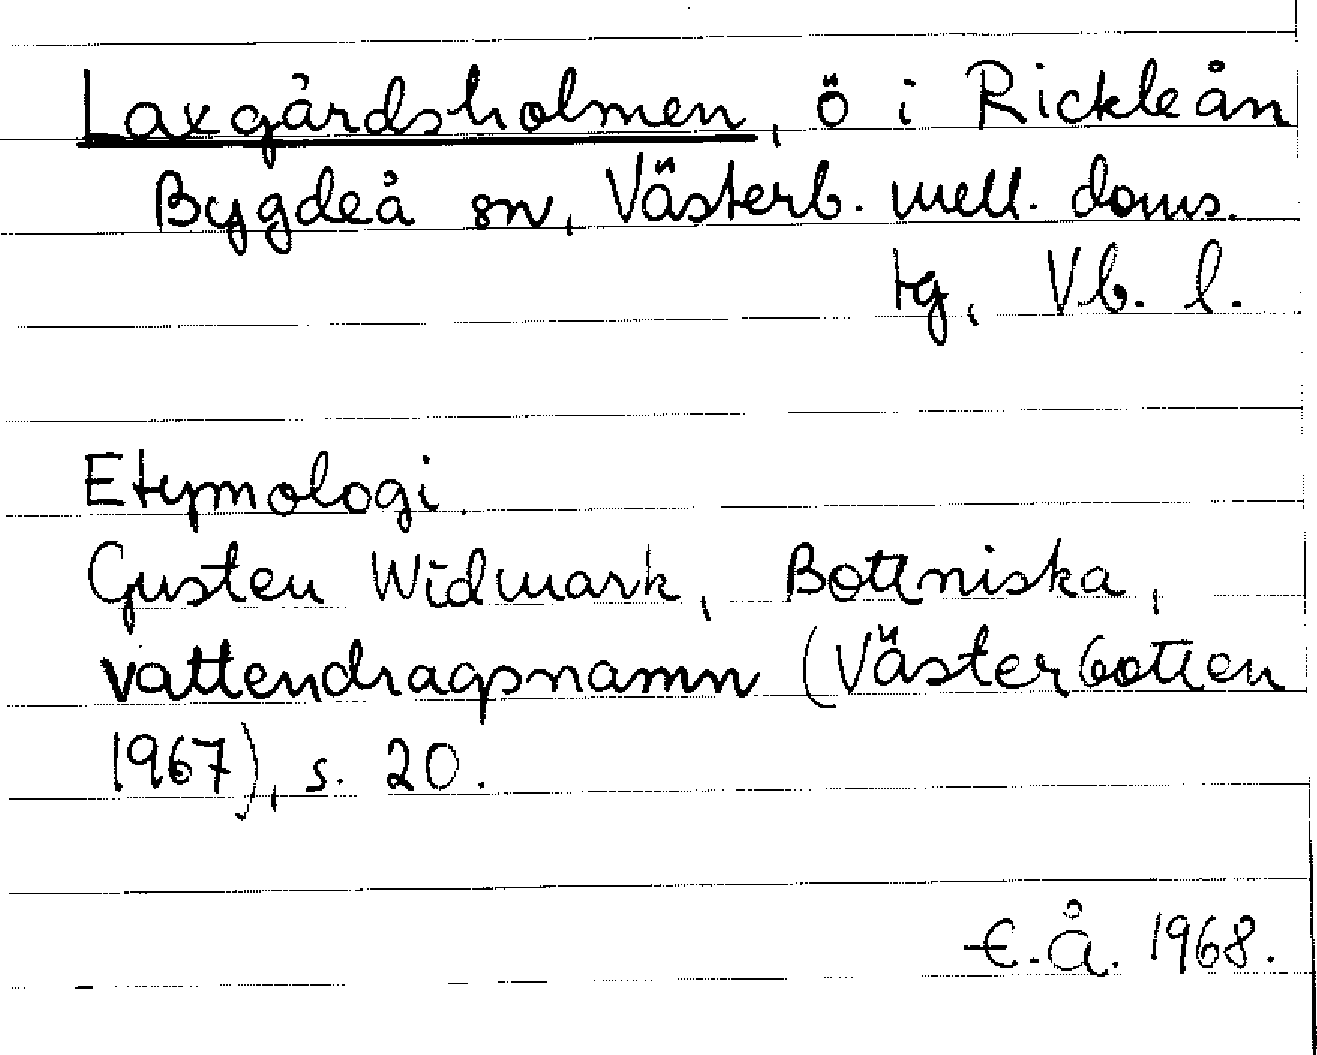 Laxgårdsholmen, ö i Rickleån
Bygdeå sn, Västerb. mell. doms.
tg, Vb. l.
Etymologi.
Gusten Widmark, Bottniska,
vattendragsnamn (Västerbotten
1967), s. 20.
E.Å. 1968.